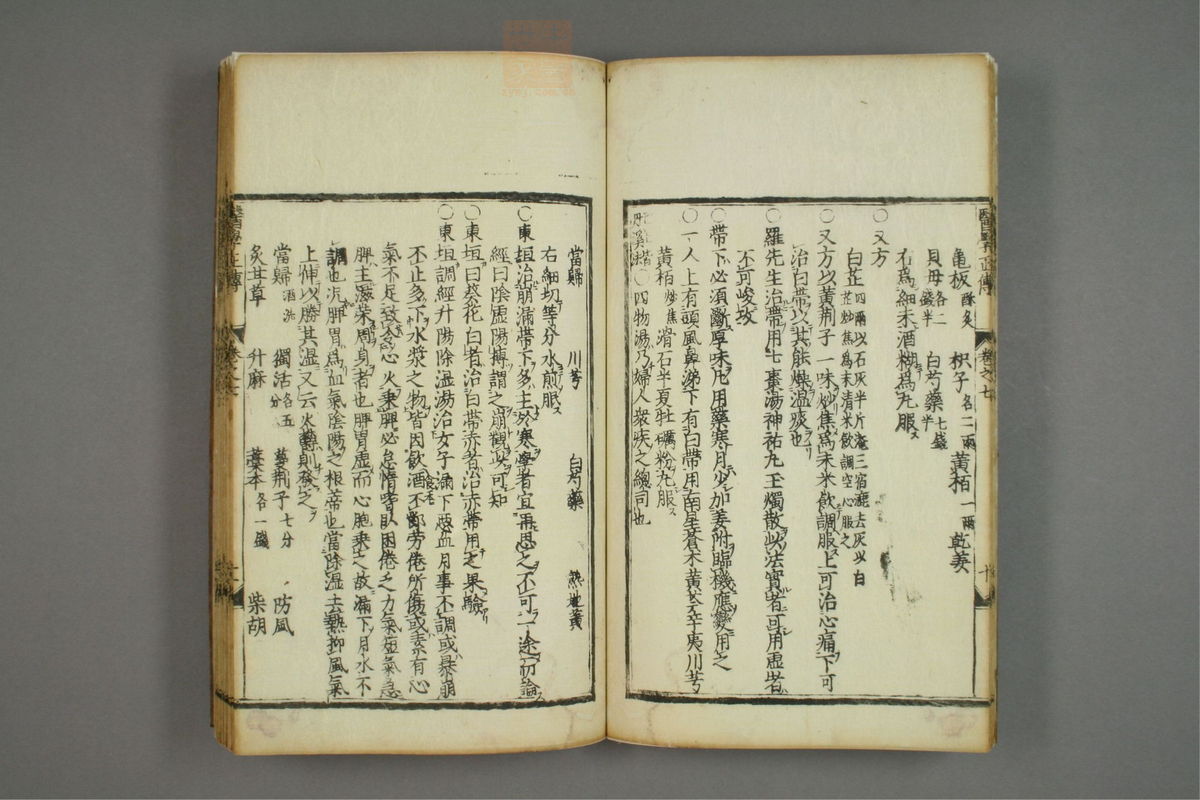 醫學正傳 卷之七 十
龜板 酥炙 枳子 各二兩 黃栢 一兩 乾姜
貝母 各二錢半 白芍藥 七錢半
右爲細末酒糊爲丸服
○又方
白芷 四兩以石灰半斤淹三宿療去灰以白芷炒焦爲末清米飲調空心服之
○又方以黃荆子一味炒焦爲末米飲調服上可治心痛下可
治白帶以其能燥温痰也
○羅先生治帶用七棗湯神祐丸玉燭散此法實者可用虚者
不可峻攻
○帶下必須斷厚味凡用藥寒月少加姜附臨機應變用之
○一人上有頭風鼻涕下有白帶用南星蒼术黃芩辛夷川芎
黃栢 炒焦 滑石半夏牡礪粉丸服
○四物湯乃婦人衆疾之總司也
當歸 川芎 白芍藥 熟地黃
右細切等分水煎服
○東垣治崩漏帶下多主於寒學者宜再思之不可一途而論
經曰陰虚陽搏謂之崩觀此可知
○東垣曰葵花白者治白帶赤者治赤帶用之果驗
○東垣調經升陽除湿湯治女子漏下惡血月事不調或暴崩
不止多下水漿之物皆因飲酒不節勞倦所傷或素有心
氣不足致令心火乘脾必怠惰嗜臥困倦乏力氣短氣急
脾主滋榮周身者也脾胃虚而心胞乘之故漏下月水不
調也况脾胃爲血氣陰陽之根蒂也當除湿去熱抑風氣
上伸以勝其湿又云火鬱則發之
當歸 酒洗 獨活 各五分 蔓荆子 七分 防風
炙甘草 升麻 藁本 各一錢 柴胡
醫學正傳